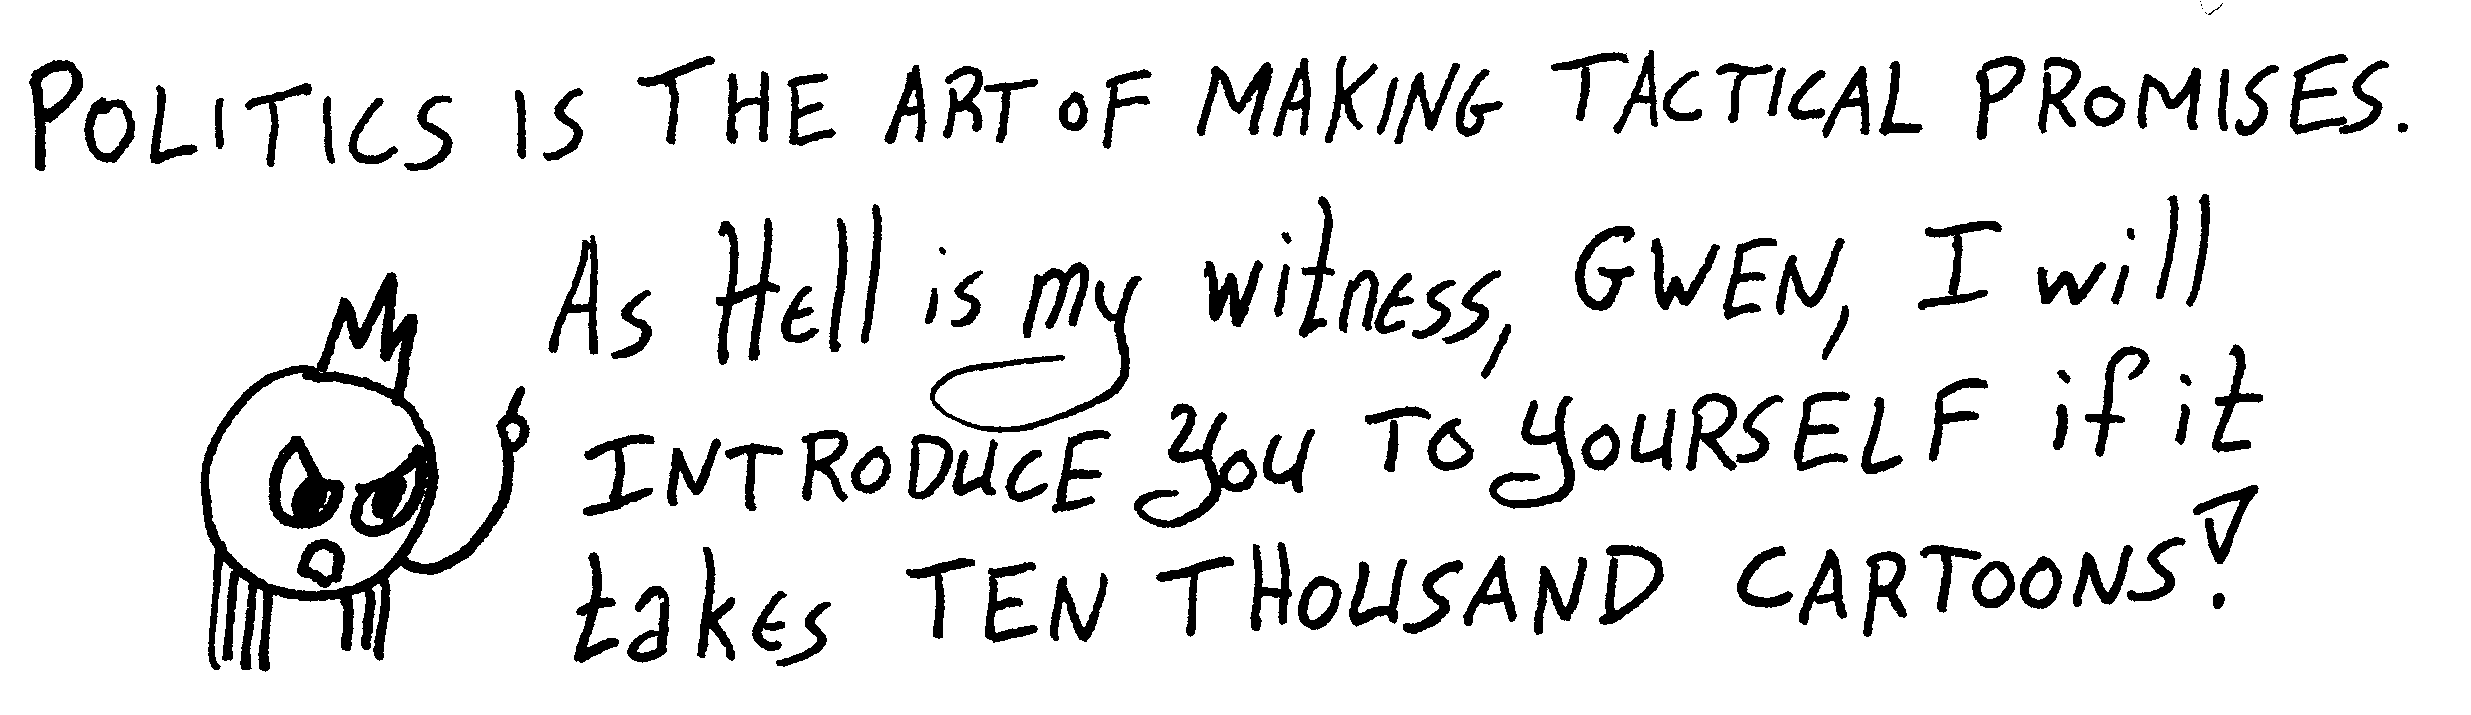 POLITICS IS THE ART OF MAKING TACTICAL PROMISES.
As Hell is my witness, GWEN, I will
INTRODUCE you TO yOURSELF if it
takes TEN THOUSAND CARTOONS!